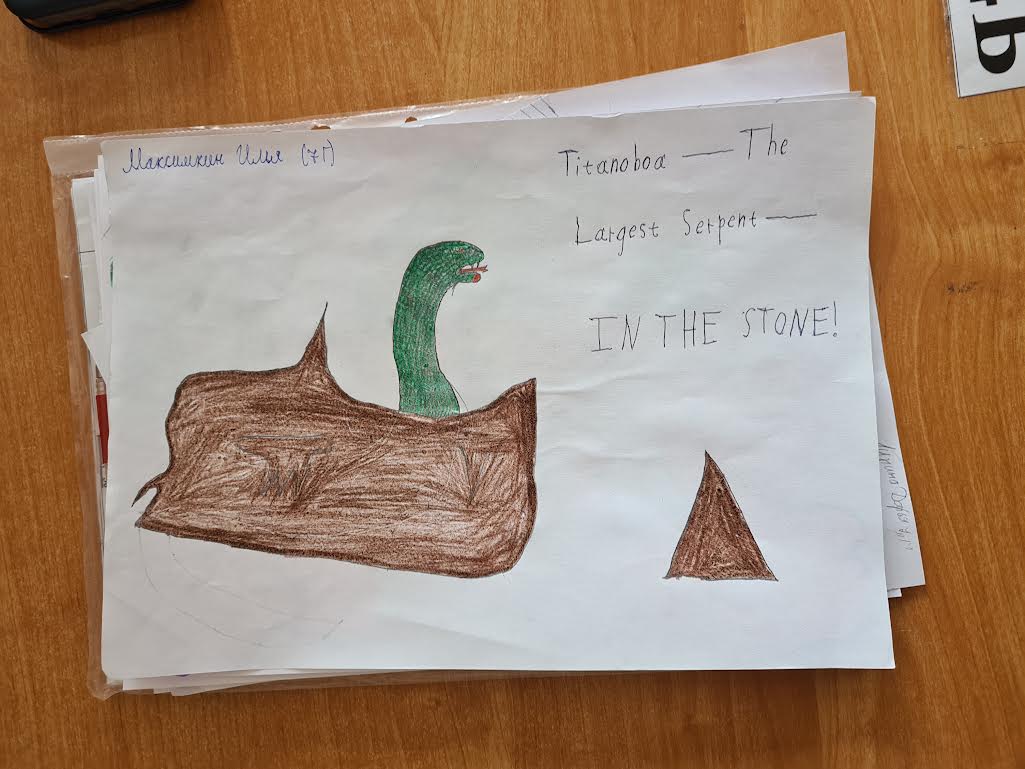 Максимкин Илья (7Г)
Titanoboa — The
Largest Serpent —
IN THE STONE!
Ь